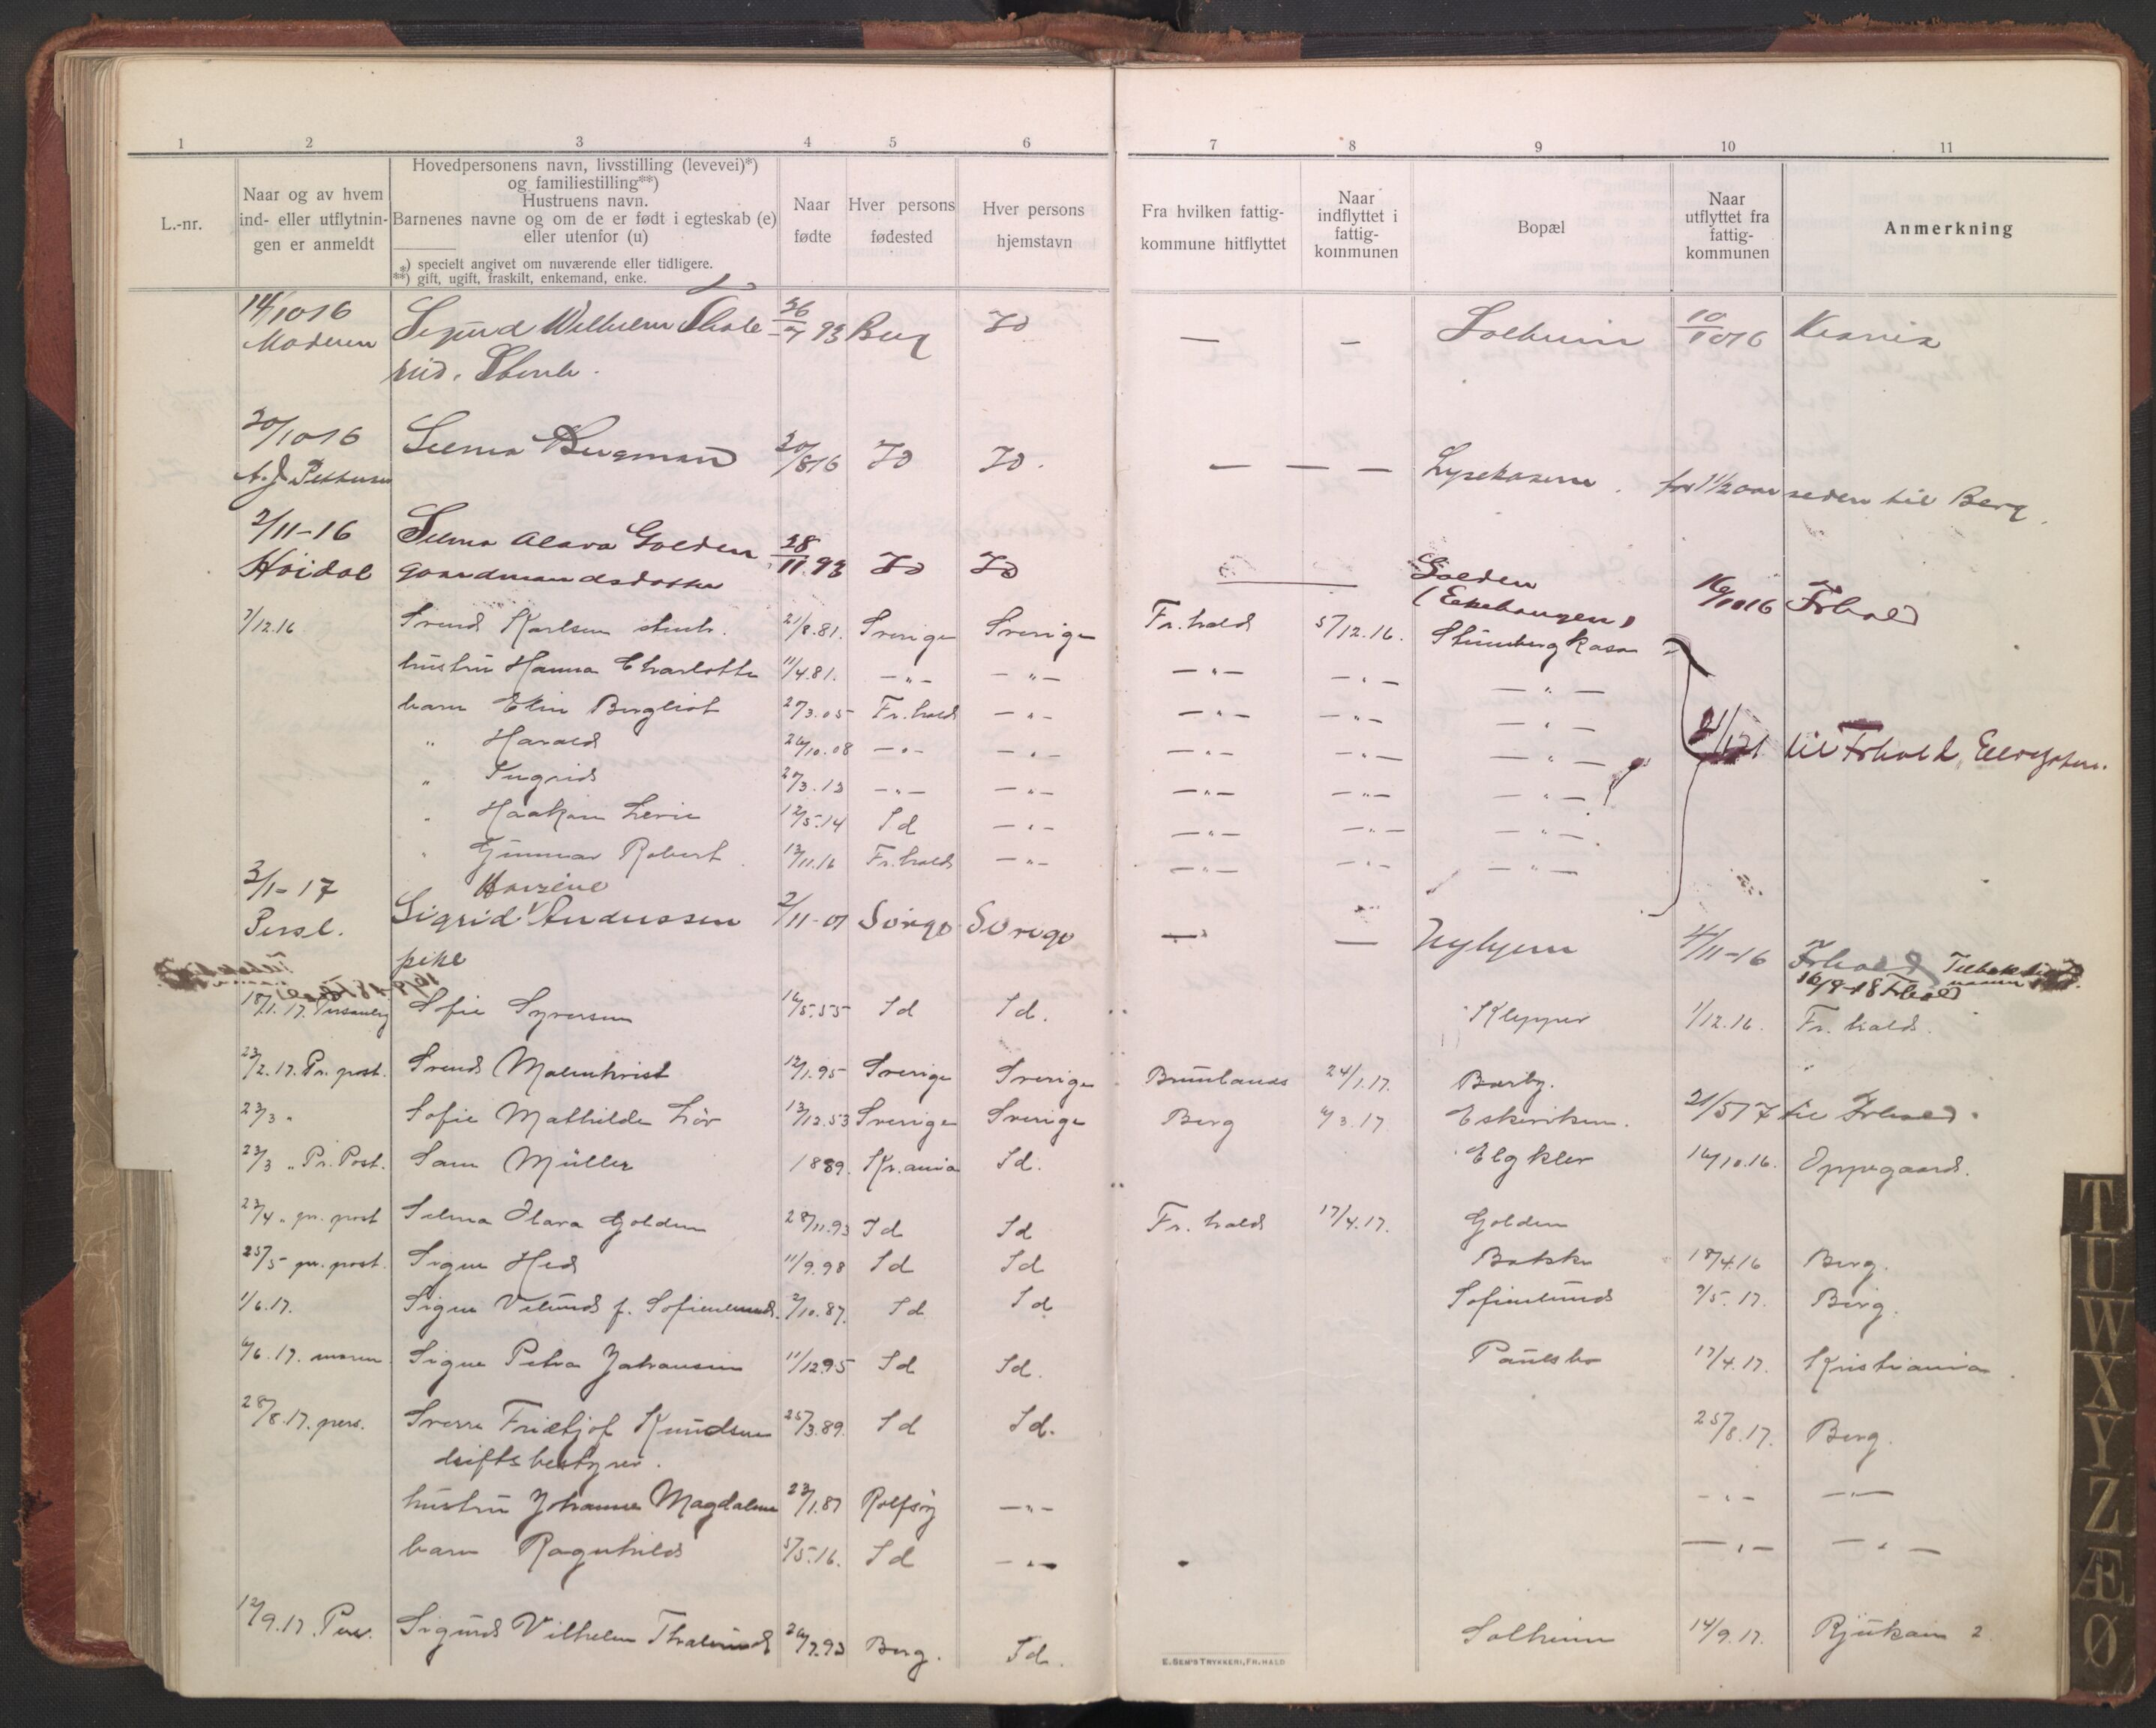 1 2 3 4 5 6 7 8 9 10 11
L.-nr.
Naar og av hvem
ind- eller utflytnin-
gen er anmeldt
Hovedpersonens navn, livsstilling (levevei)*)
og familiestilling**)
Hustruens navn.
Barnenes navne og om de er født i egteskab (e)
eller utenfor (u)
*) specielt angivet om nuværende eller tidligere.
**) gift, ugift, fraskilt, enkemand, enke.
Naar
fødte
Hver persons
fødested
Hver persons
hjemstavn
Fra hvilken fattig-
kommune hitflyttet
Naar
indflyttet i
fattig-
kommunen
Bopæl
Naar
utflyttet fra
fattig-
kommunen
Anmerkning
14/10 16 Sigurd Wilhelm Thole 26/7 93 Berg Id — — Solheim 10/10 16
Moderen rud.
20/10 16 Selma Bergman 20/8 16 Id Id. — — — Lysekasene. for 1 1/2 aar siden til Berg.
A. J. Pettersen
2/11-16 Selma Alava Golden 28/11.93 Id Id — Golden 16/10 16 Frhald
Höidal gaardmandsdatter (Ekehaugen)
7/12.16 Svend Karlsen 21/8.81. Sverige Sverige Fr.hald 5/12.16. Stumberg kasa
hustru Hanna Charlotte 11/4.81. —„— —„— —„— —„— —„—
barn Elin Bergliot 27/3.05 Fr.hald —„— —„— —„— —„— 21/1 21 til Frhald,
„ Harald 26/10.08 —„— —„— —„— —„— —„—
„ Ingrid 27/3.13 —„— —„— —„— —„— —„—
„ Haakon Levin 12/5.14 Id —„— —„— —„— —„—
„ Gunnar Robert 13/11.16 Fr.hald —„— —„— —„— —„—
3/1-17 Sigrid Andersen 2/11-01 Sverige Sverige — — Nyhjem 4/11-16 Frhald
Persl. pike 16/9-18 Frhald
18/1.17. Sofie Syversen 16/5.55 Id Id. Klepper 1/12.16. Fr.hald.
23/2.17. Pr. post. Svend Malmkvist 12/1.95 Sverige Sverige Brunlanes 24/1.17. Barby.
23/3 „ Sofie Mathilde Löv 13/12.53 Sverige Sverige Berg 6/3.17 Eskeviken. 21/5 17 til Frhald.
23/3 „ Pr. Post. Sam Müller 1889. Kr.ania Id. Elgklev 16/10.16. Oppegaard.
23/4 „ pr. post Selma Olara Golden 28/11.93 Id Id Fr.hald 17/4.17. Golden
25/5 pr. post. Signe Hed 11/9.98 Id Id Bakke 18/4.16 Berg.
1/6.17. Signe Velund f. Sofienlund. 2/10.87. Id Id Sofienlund 9/5.17. Berg.
6/6.17. moren Signe Petra Johansen 11/12.95 Id Id. Paulsbo 17/4.17. Kristiania.
28/8.17. pers. Sverre Fridtjof Knudsen 25/3.89. Id Id. 25/8.17. Berg.
driftsbestyrer.
hustru Johanne Magdalene 23/1.87 Rolfsöy —„— —„— —„—
barn Ragnhild 5/5.16. Id —„— —„— —„—
12/9.17. Pers. Sigurd Vilhelm Tholerud 26/7.93 Berg. Id. Solheim 14/9.17. Rjukan 2
E. SEM'S TRYKKERI, FR.HALD
T
U
W
X
Y
Z
Æ
Ø